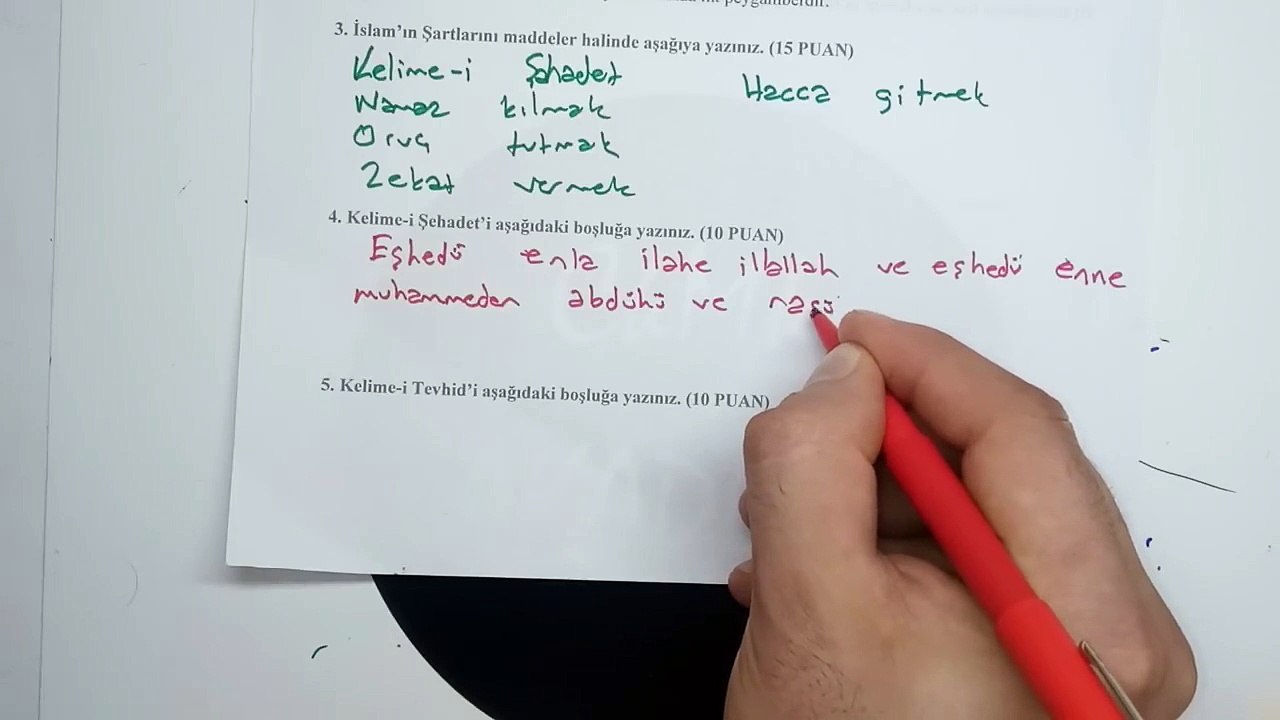 peygamberdir.
3. İslam'ın Şartlarını maddeler halinde aşağıya yazınız. (15 PUAN)
Kelime-i Şehadet Hacca gitmek
Namaz kılmak
Oruç tutmak
Zekat vermek
4. Kelime-i Şehadet'i aşağıdaki boşluğa yazınız. (10 PUAN)
Eşhedü enla ilahe illallah ve eşhedü enne
muhammeden abdühü ve rasü
5. Kelime-i Tevhid'i aşağıdaki boşluğa yazınız. (10 PUAN)